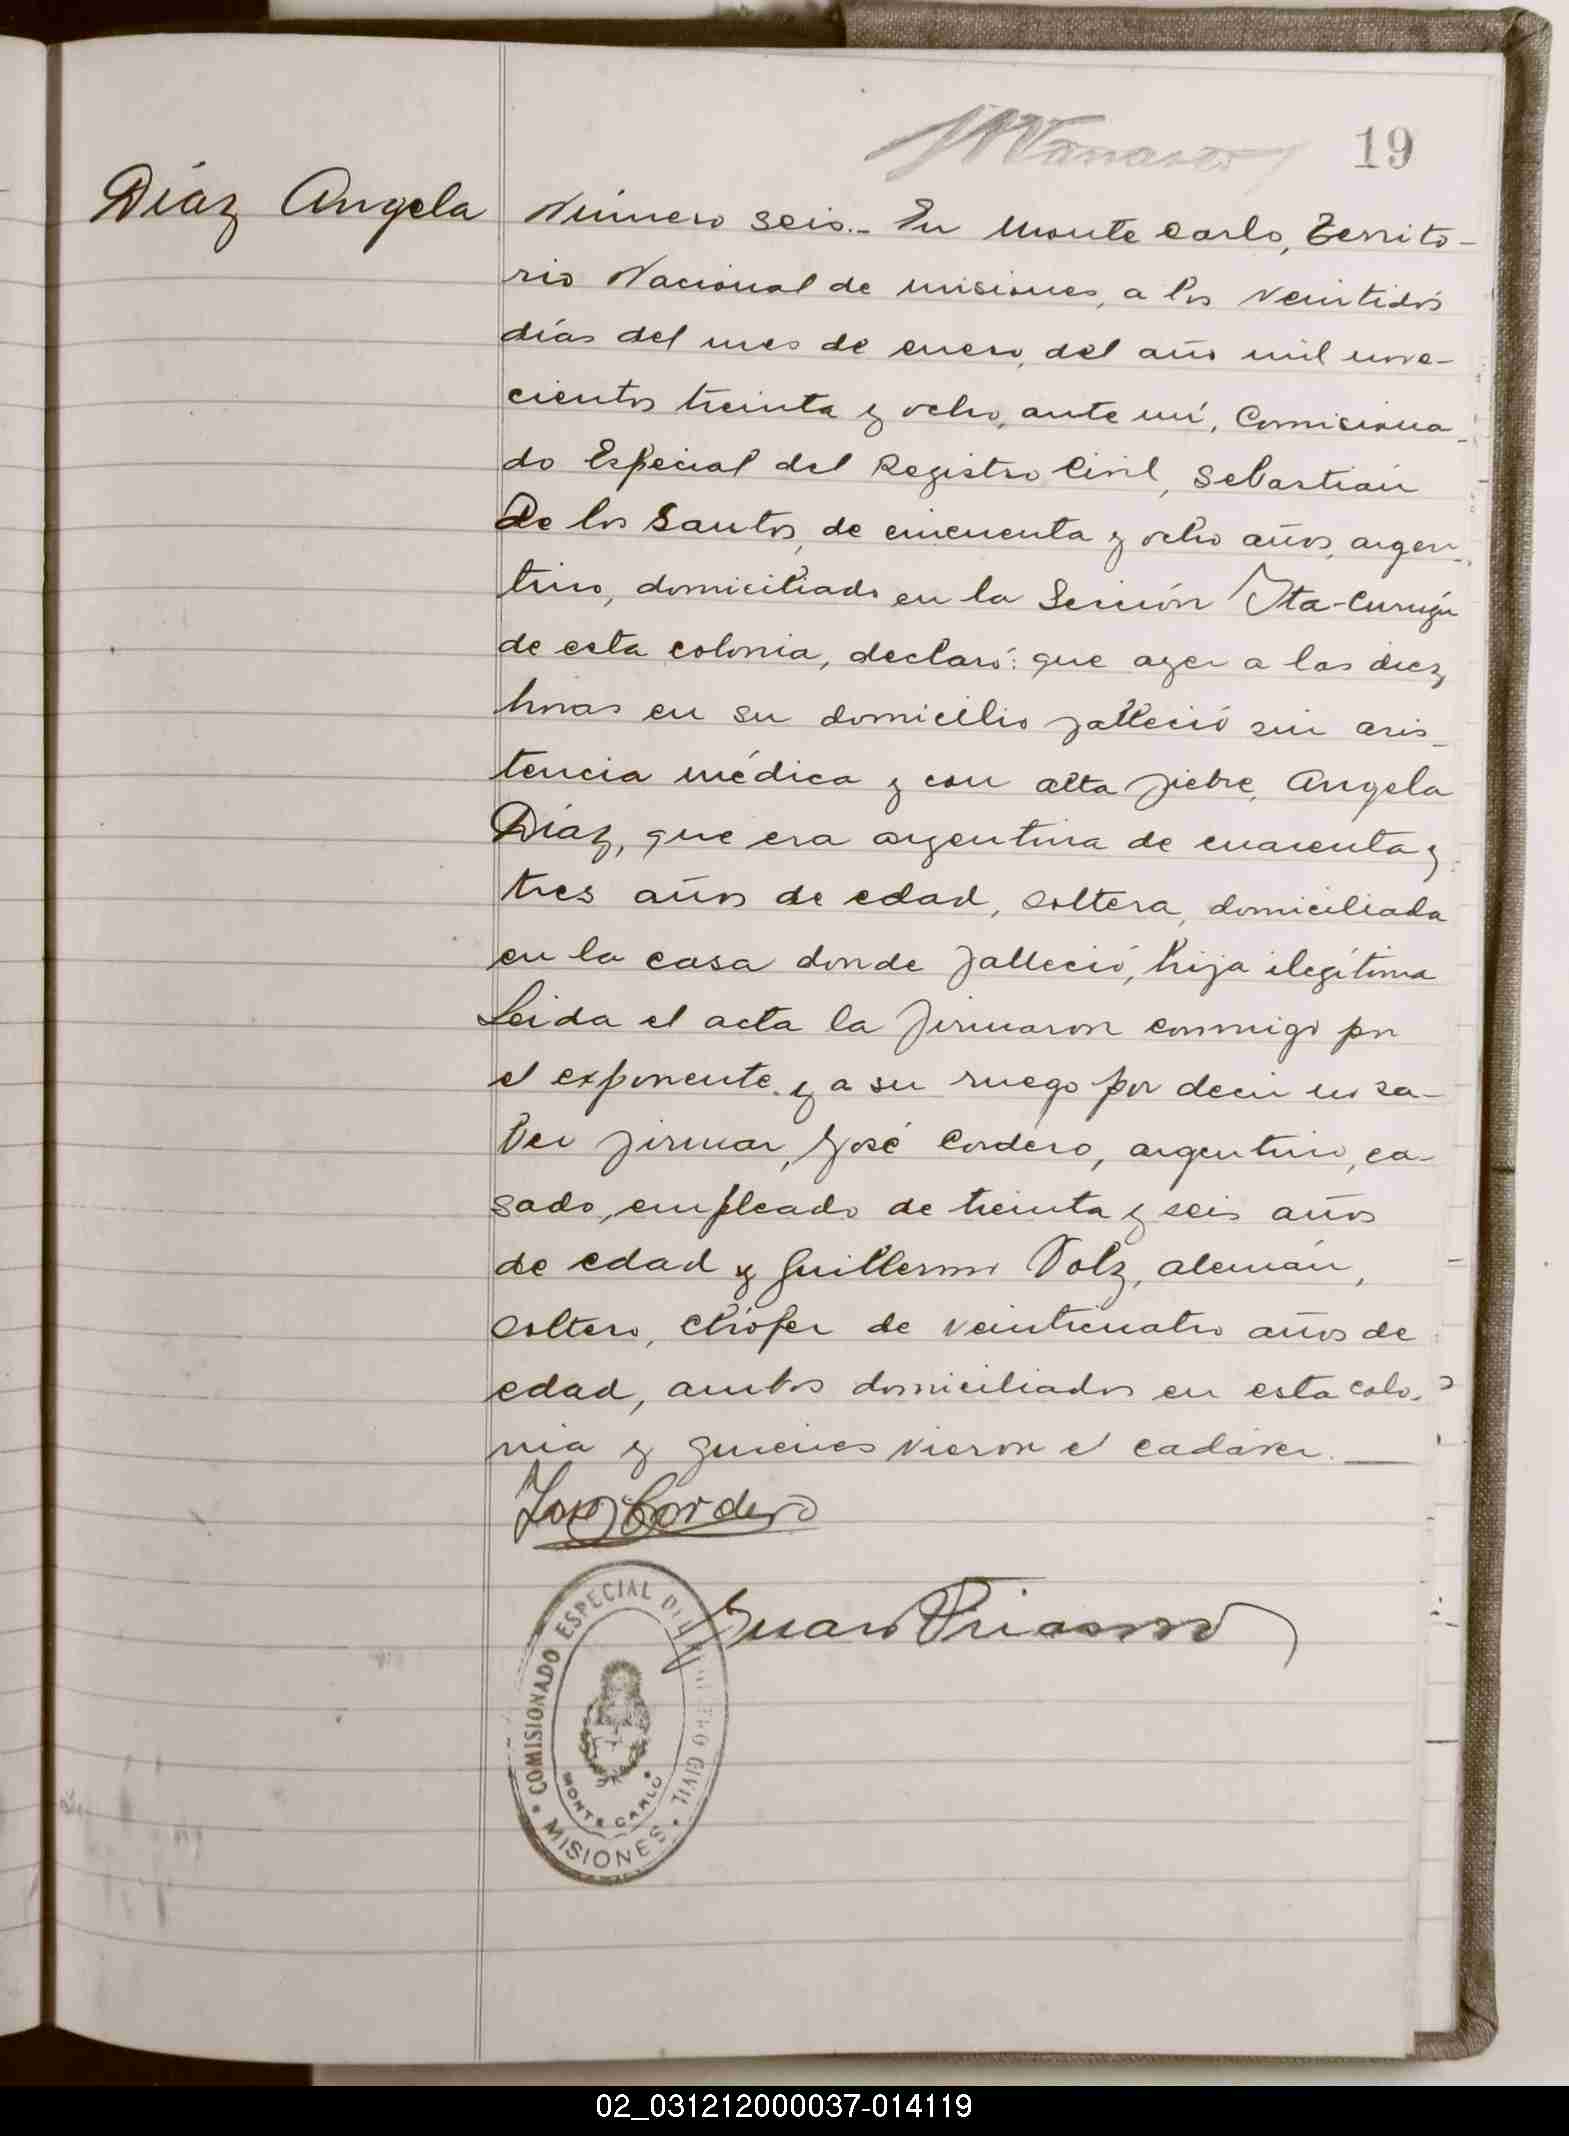 19
Díaz Angela
Número seis.- En Monte Carlo, Territo-
rio Nacional de misiones, a los veintidós
días del mes de enero, del año mil nove-
cientos treinta y ocho, ante mí, Comisiona-
do Especial del Registro Civil, Sebastián
De los Santos, de cincuenta y ocho años, argen-
tino, domiciliado en la Sección Ita-Curuzú
de esta colonia, declaró: que ayer a las diez
horas en su domicilio falleció sin asis-
tencia médica y con alta fiebre, Angela
Díaz, que era argentina de cuarenta y
tres años de edad, soltera, domiciliada
en la casa donde falleció, hija ilegítima
Leída el acta la firmaron conmigo por
el exponente y a su ruego por decir no sa-
ber firmar, José Cordero, argentino, ca-
sado, empleado de treinta y seis años
de edad y Guillermo Volz, alemán,
soltero, chófer de veinticuatro años de
edad, ambos domiciliados en esta colo-
nia y quienes vieron el cadáver.
José Cordero
Juan
COMISIONADO ESPECIAL DEL REGISTRO CIVIL
MONTE CARLO
MISIONES
02_031212000037-014119